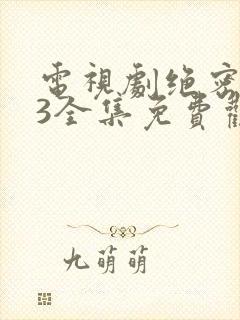 電視劇绝密
3全集免費
九萌萌